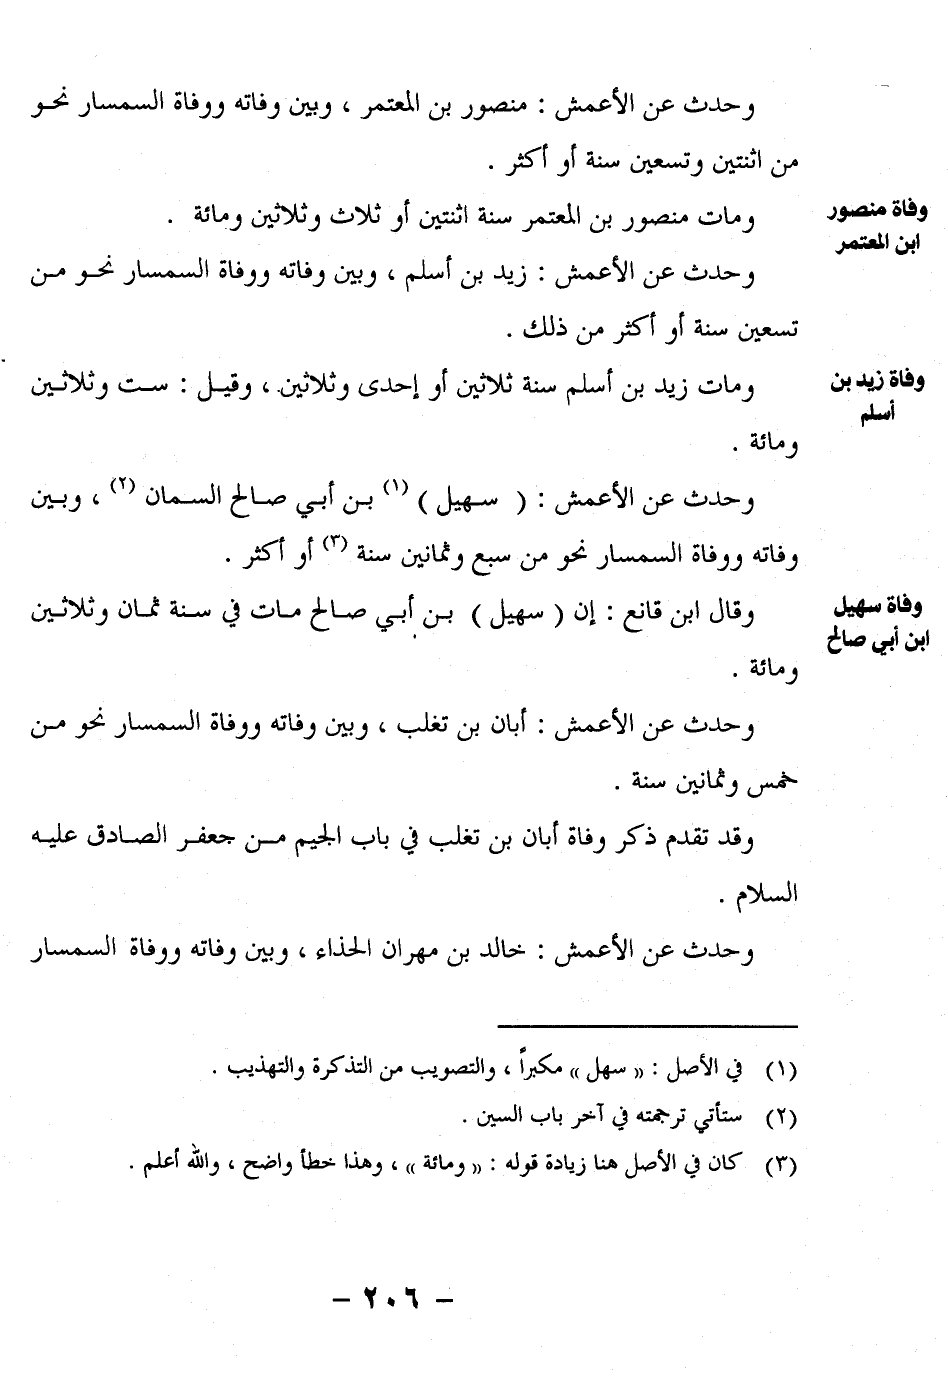 وحدث عن الأعمش : منصور بن المعتمر ، وبين وفاته ووفاة السمسار نحو
من اثنتين وتسعين سنة أو أكثر .
وفاة منصور
ابن المعتمر
ومات منصور بن المعتمر سنة اثنتين أو ثلاث وثلاثين ومائة .
وحدث عن الأعمش : زيد بن أسلم ، وبين وفاته ووفاة السمسار نحو من
تسعين سنة أو أكثر من ذلك .
وفاة زيد بن
أسلم
ومات زيد بن أسلم سنة ثلاثين أو إحدى وثلاثين ، وقيل : ست وثلاثين
ومائة .
وحدث عن الأعمش : ( سهيل ) (١) بن أبي صالح السمان (٢) ، وبين
وفاته ووفاة السمسار نحو من سبع وثمانين سنة (٣) أو أكثر .
وفاة سهيل
ابن أبي صالح
وقال ابن قانع : إن ( سهيل ) بن أبي صالح مات في سنة ثمان وثلاثين
ومائة .
وحدث عن الأعمش : أبان بن تغلب ، وبين وفاته ووفاة السمسار نحو من
خمس وثمانين سنة .
وقد تقدم ذكر وفاة أبان بن تغلب في باب الجيم من جعفر الصادق عليه
السلام .
وحدث عن الأعمش : خالد بن مهران الحذاء ، وبين وفاته ووفاة السمسار
(١) في الأصل : « سهل » مكبراً ، والتصويب من التذكرة والتهذيب .
(٢) ستأتي ترجمته في آخر باب السين .
(٣) كان في الأصل هنا زيادة قوله : « ومائة » ، وهذا خطأ واضح ، والله أعلم .
- ٢٠٦ -